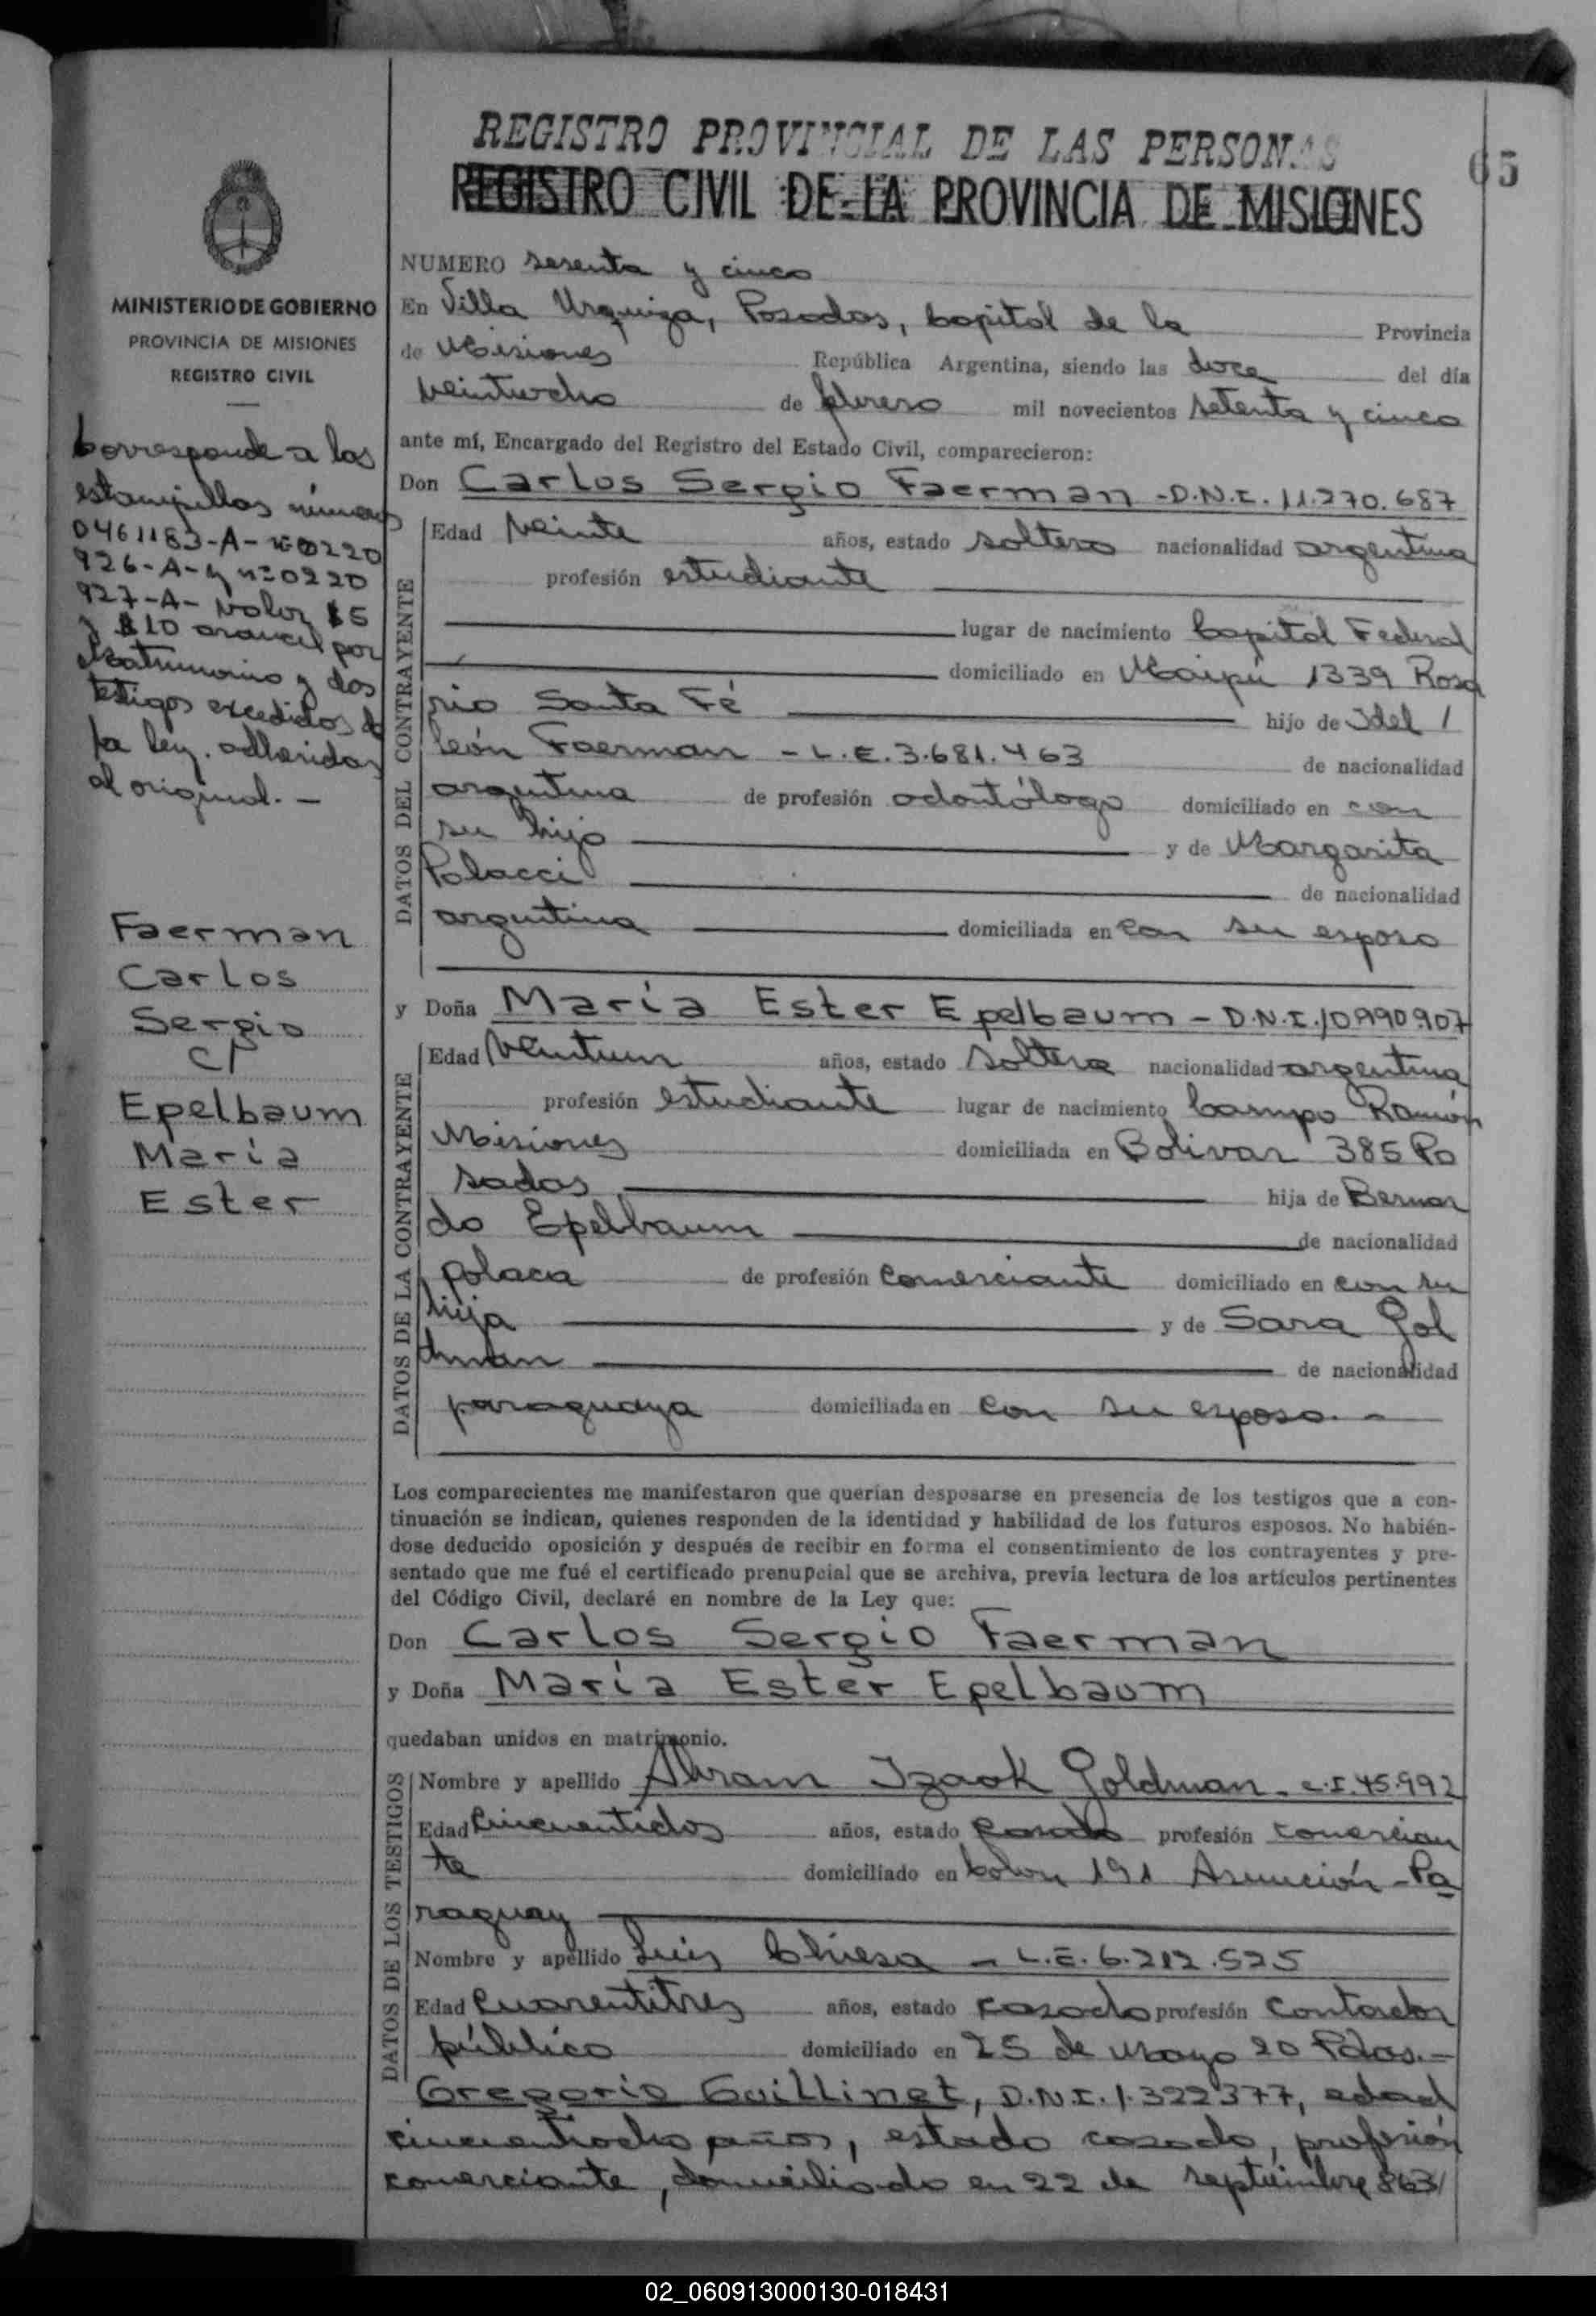 REGISTRO PROVINCIAL DE LAS PERSONAS
65
REGISTRO CIVIL DE LA PROVINCIA DE MISIONES
MINISTERIO DE GOBIERNO
PROVINCIA DE MISIONES
REGISTRO CIVIL
Corresponde a las
estampillas números
0461183-A- nº 0220
926-A- y nº 0220
927-A- valor $5
y $10 arancel por
Matrimonio y dos
testigos excedidos de
la ley. adheridas
al original. -
Faerman
Carlos
Sergio
c/
Epelbaum
María
Ester
NUMERO sesenta y cinco
En Villa Urquiza, Posadas, Capital de la Provincia
de Misiones República Argentina, siendo las doce del día
veintiocho de febrero mil novecientos setenta y cinco
ante mí, Encargado del Registro del Estado Civil, comparecieron:
Don Carlos Sergio Faerman -D.N.I. 11.270.687
DATOS DEL CONTRAYENTE
Edad veinte años, estado soltero nacionalidad argentina
profesión estudiante
lugar de nacimiento Capital Federal
domiciliado en Maipú 1339 Rosa
rio Santa Fé hijo de Idel /
león Faerman - L.E. 3.681.463 de nacionalidad
argentina de profesión odontólogo domiciliado en con
su hijo y de Margarita
Polacci de nacionalidad
argentina domiciliada en con su esposo
y Doña María Ester Epelbaum - D.N.I. 10.990.907
DATOS DE LA CONTRAYENTE
Edad veintiun años, estado soltera nacionalidad argentina
profesión estudiante lugar de nacimiento Campo Ramón
Misiones domiciliada en Bolivar 385 Po
sadas hija de Bernar
do Epelbaum de nacionalidad
polaca de profesión comerciante domiciliado en con su
hija y de Sara Gol
dman de nacionalidad
paraguaya domiciliada en con su esposo. -
Los comparecientes me manifestaron que querían desposarse en presencia de los testigos que a con-
tinuación se indican, quienes responden de la identidad y habilidad de los futuros esposos. No habién-
dose deducido oposición y después de recibir en forma el consentimiento de los contrayentes y pre-
sentado que me fué el certificado prenupcial que se archiva, previa lectura de los artículos pertinentes
del Código Civil, declaré en nombre de la Ley que:
Don Carlos Sergio Faerman
y Doña María Ester Epelbaum
quedaban unidos en matrimonio.
DATOS DE LOS TESTIGOS
Nombre y apellido Abram Izaok Goldman - c.I. 45.992
Edad cincuentidos años, estado casado profesión comercian
te domiciliado en Colon 191 Asunción - Pa
raguay
Nombre y apellido Luis Chiesa - L.E. 6.212.525
Edad cuarentitres años, estado casado profesión contador
público domiciliado en 25 de Mayo 20 Pdas.-
Gregorio Guillinet, D.N.I. 1.322377, edad
cincuentiocho años, estado casado, profesión
comerciante, domiciliado en 22 de septiembre 863/
02_060913000130-018431